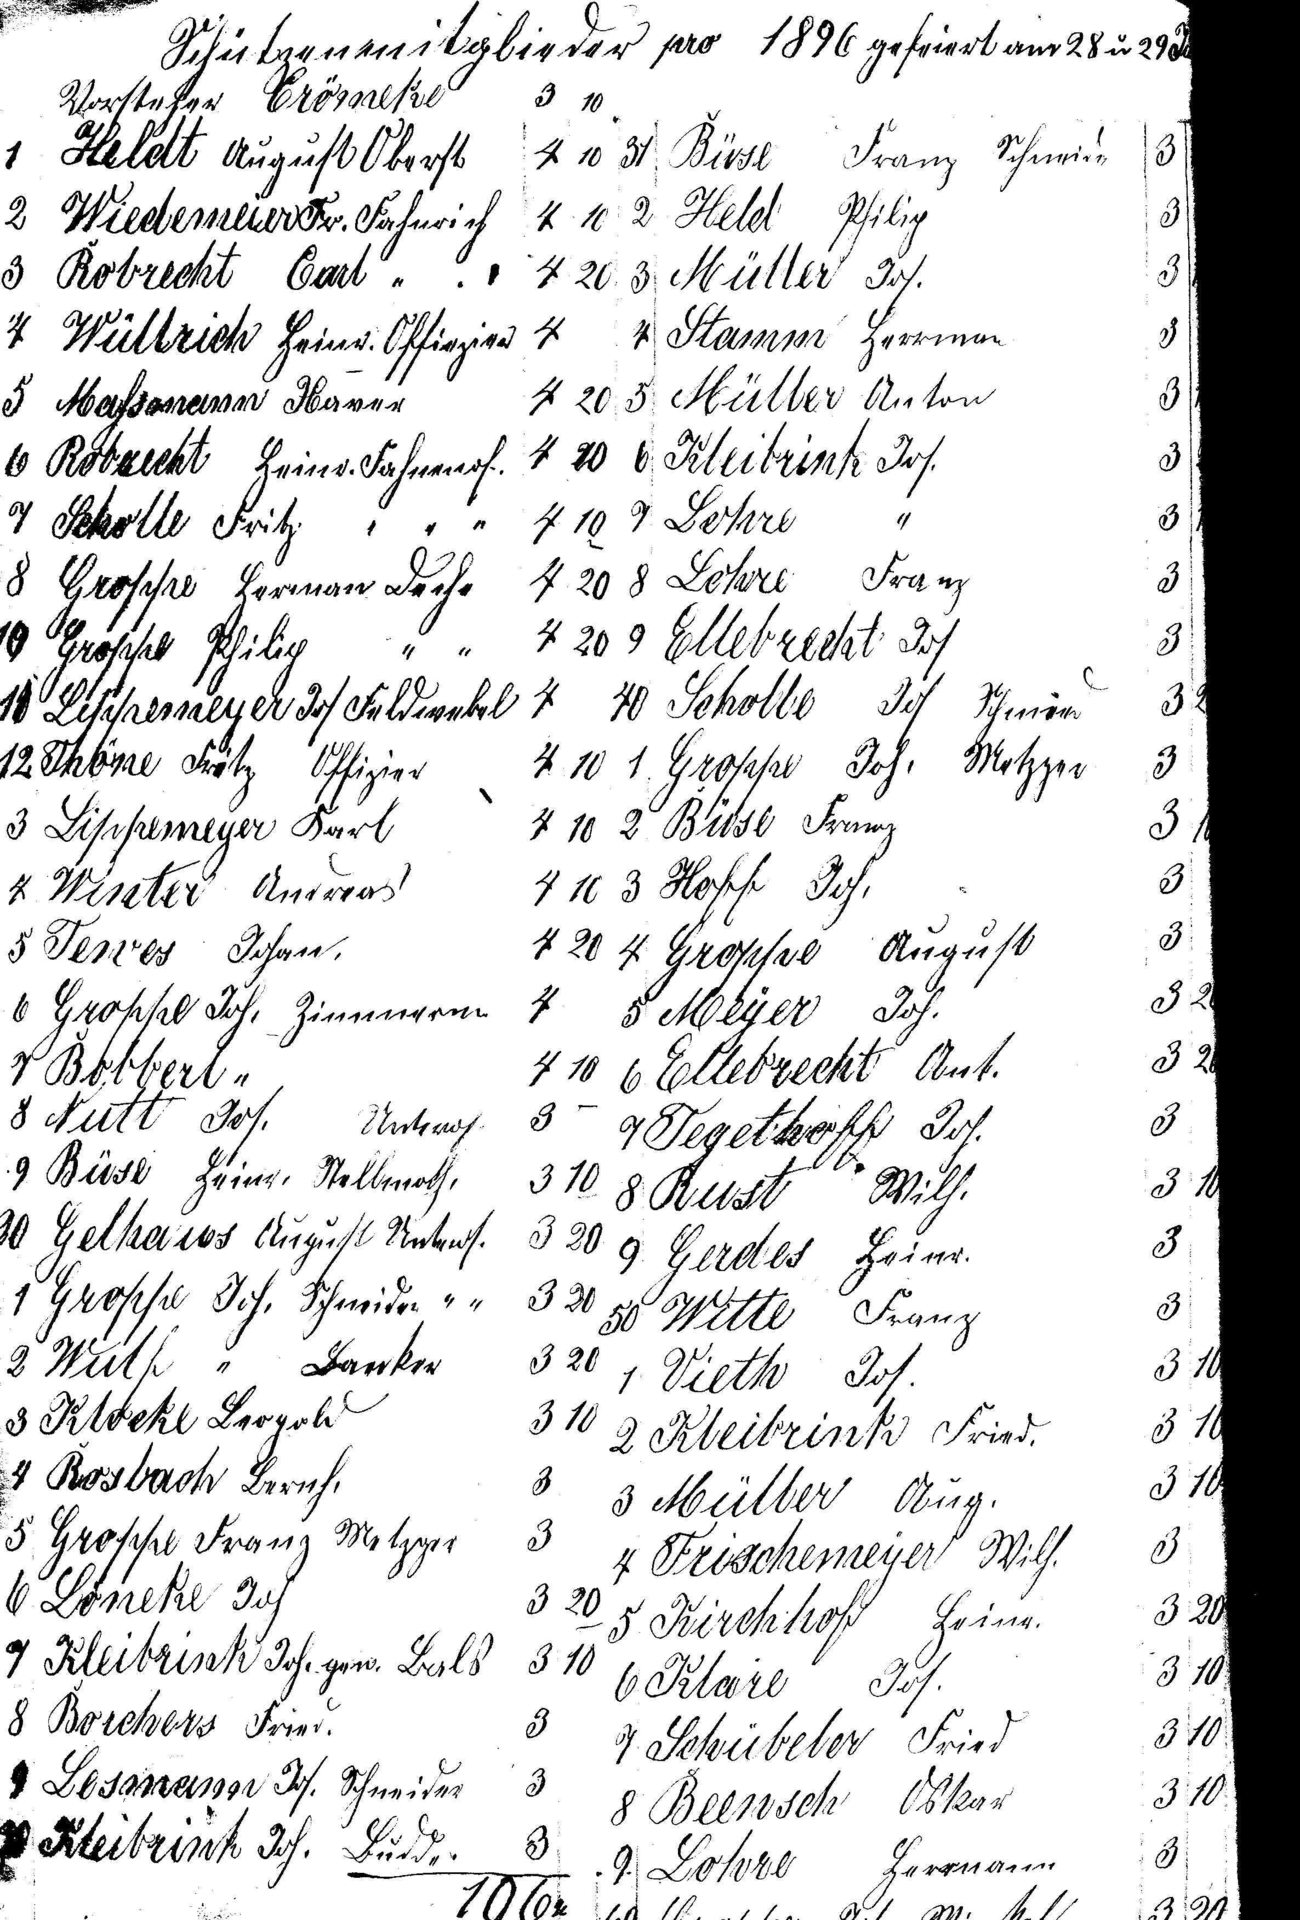 Schützenmitglieder pro 1896 gefeiert am 28 u 29
Vorsteher Crömeke 3 10
1 Heldt August Oberst 4 10
2 Wiedemeier Fr. Fahnrich 4 10
3 Robrecht Carl " 4 20
4 Wüllrich Heinr. Offizier 4
5 Massmann Xaver 4 20
6 Robrecht Heinr. Fahnenof. 4 20
7 Scholle Fritz " " " 4 10
8 Groppe Herman 4 20
10 Groppe Philip " " 4 20
Lippemeyer Jos Feldwebel 4
12 Thöne Fritz Offizier 4 10
3 Lippemeyer Karl 4 10
4 Winter Andreas 4 10
5 Tewes Johan. 4 20
6 Groppe Joh. Zimmerm 4
7 Bobbert " 4 10
8 Nutt Jos. Unterof. 3 –
9 Büse Heinr. Stellmach. 3 10
Gelhaus August Unterof. 3 20
1 Groppe Joh. Schneider " " 3 20
2 Wulf " 3 20
3 Klocke Leopold 3 10
4 Rosbach Bernh. 3
5 Groppe Franz Metzger 3
6 Löneke Joh 3 20
7 Kleibrink Joh. gen. Bals 3 10
8 Borchers Fried. 3
9 Losmann Jos. Schneider 3
Kleibrink Joh. Budde. 3
31 Büse Franz Schneide 3
2 Held Philip 3
3 Müller Jos. 3
4 Stamm Herrman 3
5 Müller Anton 3
6 Kleibrink Jos. 3
7 Lohre " 3
8 Lohre Franz 3
9 Ellebrecht Jos 3
40 Scholle Jos Schmied 3 2
1 Groppe Joh. Metzger 3
2 Büse Franz 3
3 Hoff Joh. 3
4 Groppe August 3
5 Meyer Joh. 3 20
6 Ellebrecht Ant. 3 20
7 Tegethoff Joh. 3
8 Rust Wilh. 3 10
9 Gerdes Heinr. 3
50 Witte Franz 3
1 Vieth Jos. 3 10
2 Kleibrink Fried. 3 10
3 Müller Aug. 3 10
4 Frischemeyer Wilh. 3
5 Kirchhof Heinr. 3 20
6 Klare Jos. 3 10
7 Schübeler Fried 3 10
8 Beensch Oskar 3 10
9. Lohre Herrmann 3
3 20